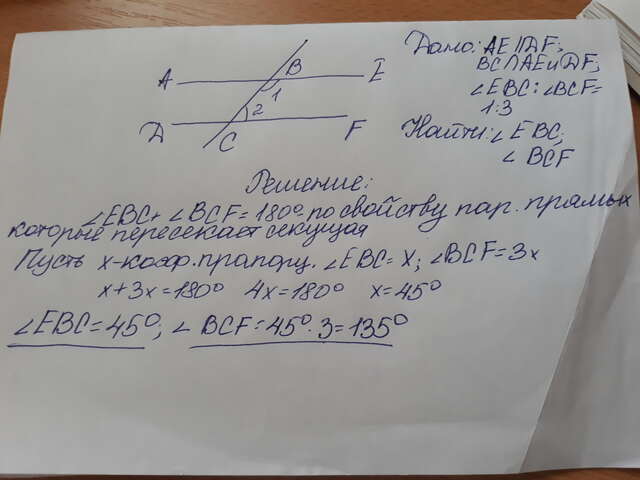 Дано: AE||DF;
BC∩AE и DF;
∠EBC:∠BCF=
1:3
Найти: ∠EBC;
∠BCF
A
B
E
1
2
D
C
F
Решение:
∠EBC+∠BCF=180° по свойству пар. прямых
которые пересекает секущая
Пусть x-коэф. пропорц. ∠EBC=x; ∠BCF=3x
x+3x=180° 4x=180° x=45°
∠EBC=45°; ∠BCF=45°·3=135°